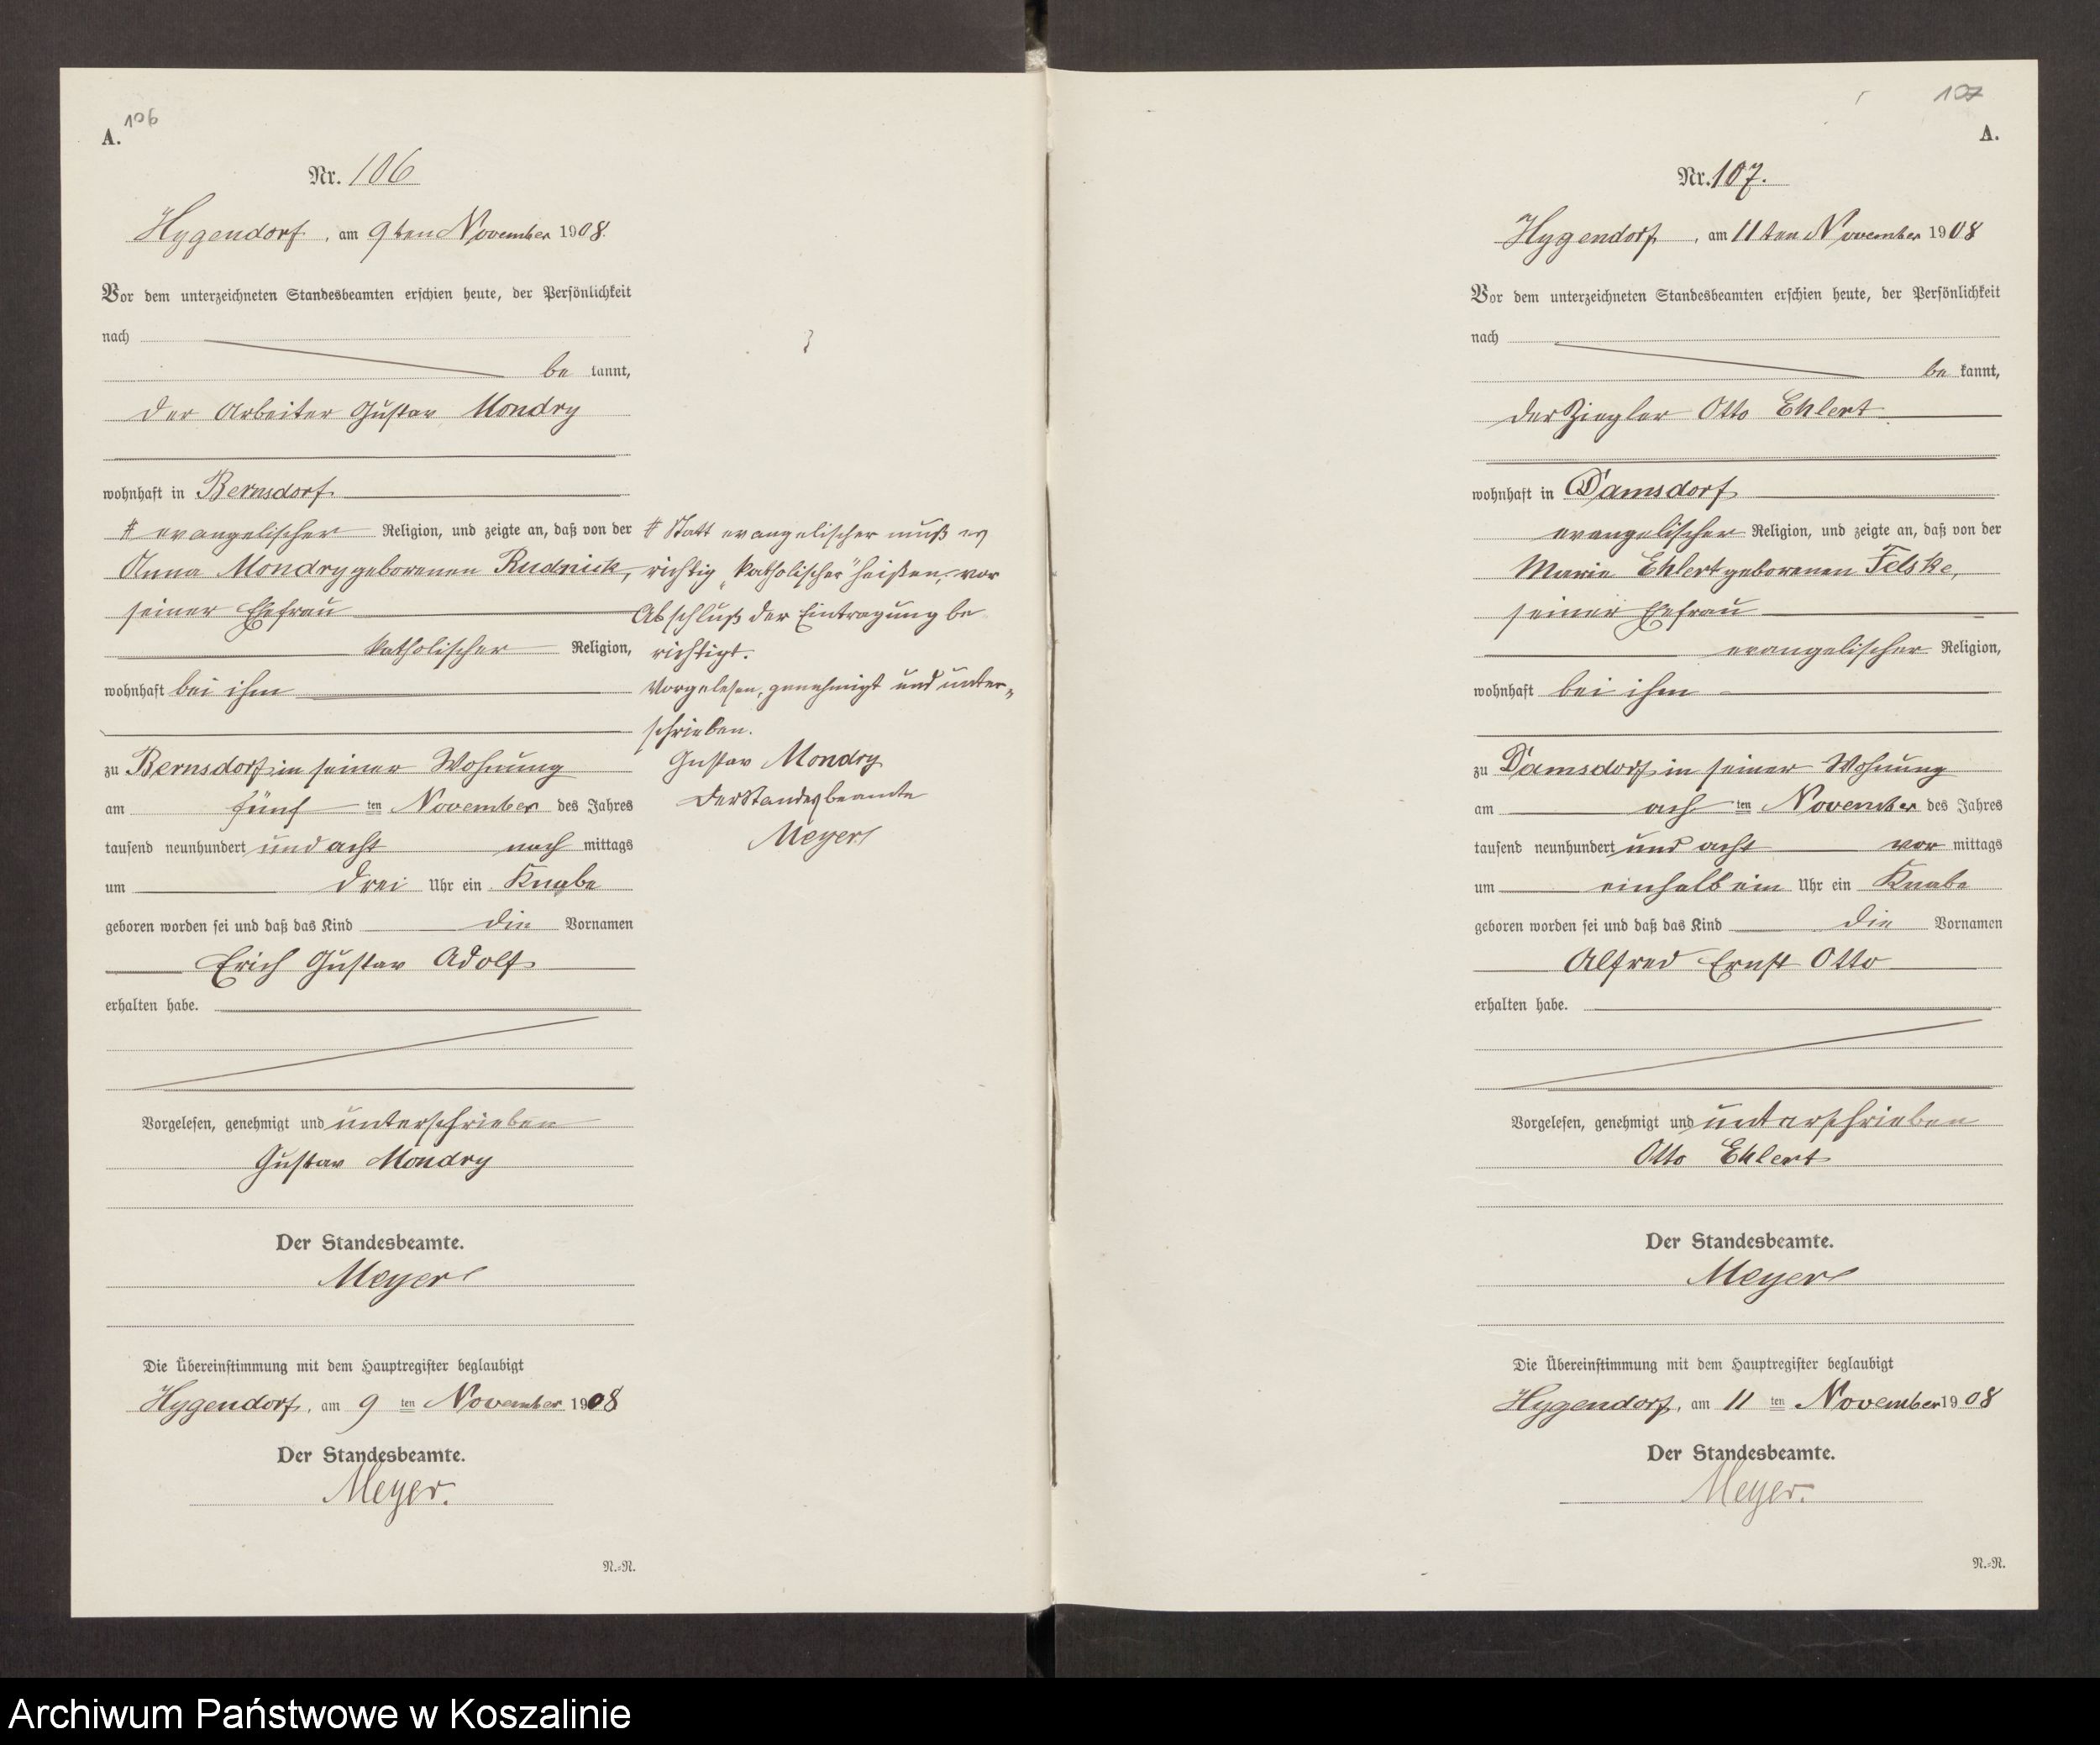 106
A.
Nr. 106
Hygendorf, am 9ten November 1908.
Vor dem unterzeichneten Standesbeamten erschien heute, der Persönlichkeit
nach
be kannt,
der Arbeiter Gustav Mondry
wohnhaft in Bernsdorf
# evangelischer Religion, und zeigte an, daß von der
Anna Mondry geborenen Rudnick,
seiner Ehefrau
katholischer Religion,
wohnhaft bei ihm
zu Bernsdorf in seiner Wohnung
am fünf ten November des Jahres
tausend neunhundert und acht nach mittags
um drei Uhr ein Knabe
geboren worden sei und daß das Kind die Vornamen
Erich Gustav Adolf
erhalten habe.
Vorgelesen, genehmigt und unterschrieben
Gustav Mondry
Der Standesbeamte.
Meyer
Die Übereinstimmung mit dem Hauptregister beglaubigt
Hygendorf, am 9 ten November 1908
Der Standesbeamte.
Meyer.
N.=N.
# Statt evangelischer muß es
richtig „katholischer" heißen, vor
Abschluß der Eintragung be
richtigt.
Vorgelesen, genehmigt und unter=
schrieben.
Gustav Mondry
Der Standesbeamte
Meyer
107
A.
Nr. 107.
Hygendorf, am 11ten November 1908
Vor dem unterzeichneten Standesbeamten erschien heute, der Persönlichkeit
nach
be kannt,
der Ziegler Otto Ehlert
wohnhaft in Damsdorf
evangelischer Religion, und zeigte an, daß von der
Marie Ehlert geborenen Felske,
seiner Ehefrau
evangelischer Religion,
wohnhaft bei ihm
zu Damsdorf in seiner Wohnung
am ach ten November des Jahres
tausend neunhundert und acht vor mittags
um einhalb ein Uhr ein Knabe
geboren worden sei und daß das Kind die Vornamen
Alfred Ernst Otto
erhalten habe.
Vorgelesen, genehmigt und unterschrieben
Otto Ehlert
Der Standesbeamte.
Meyer
Die Übereinstimmung mit dem Hauptregister beglaubigt
Hygendorf, am 11 ten November 1908
Der Standesbeamte.
Meyer.
N.=N.
Archiwum Państwowe w Koszalinie